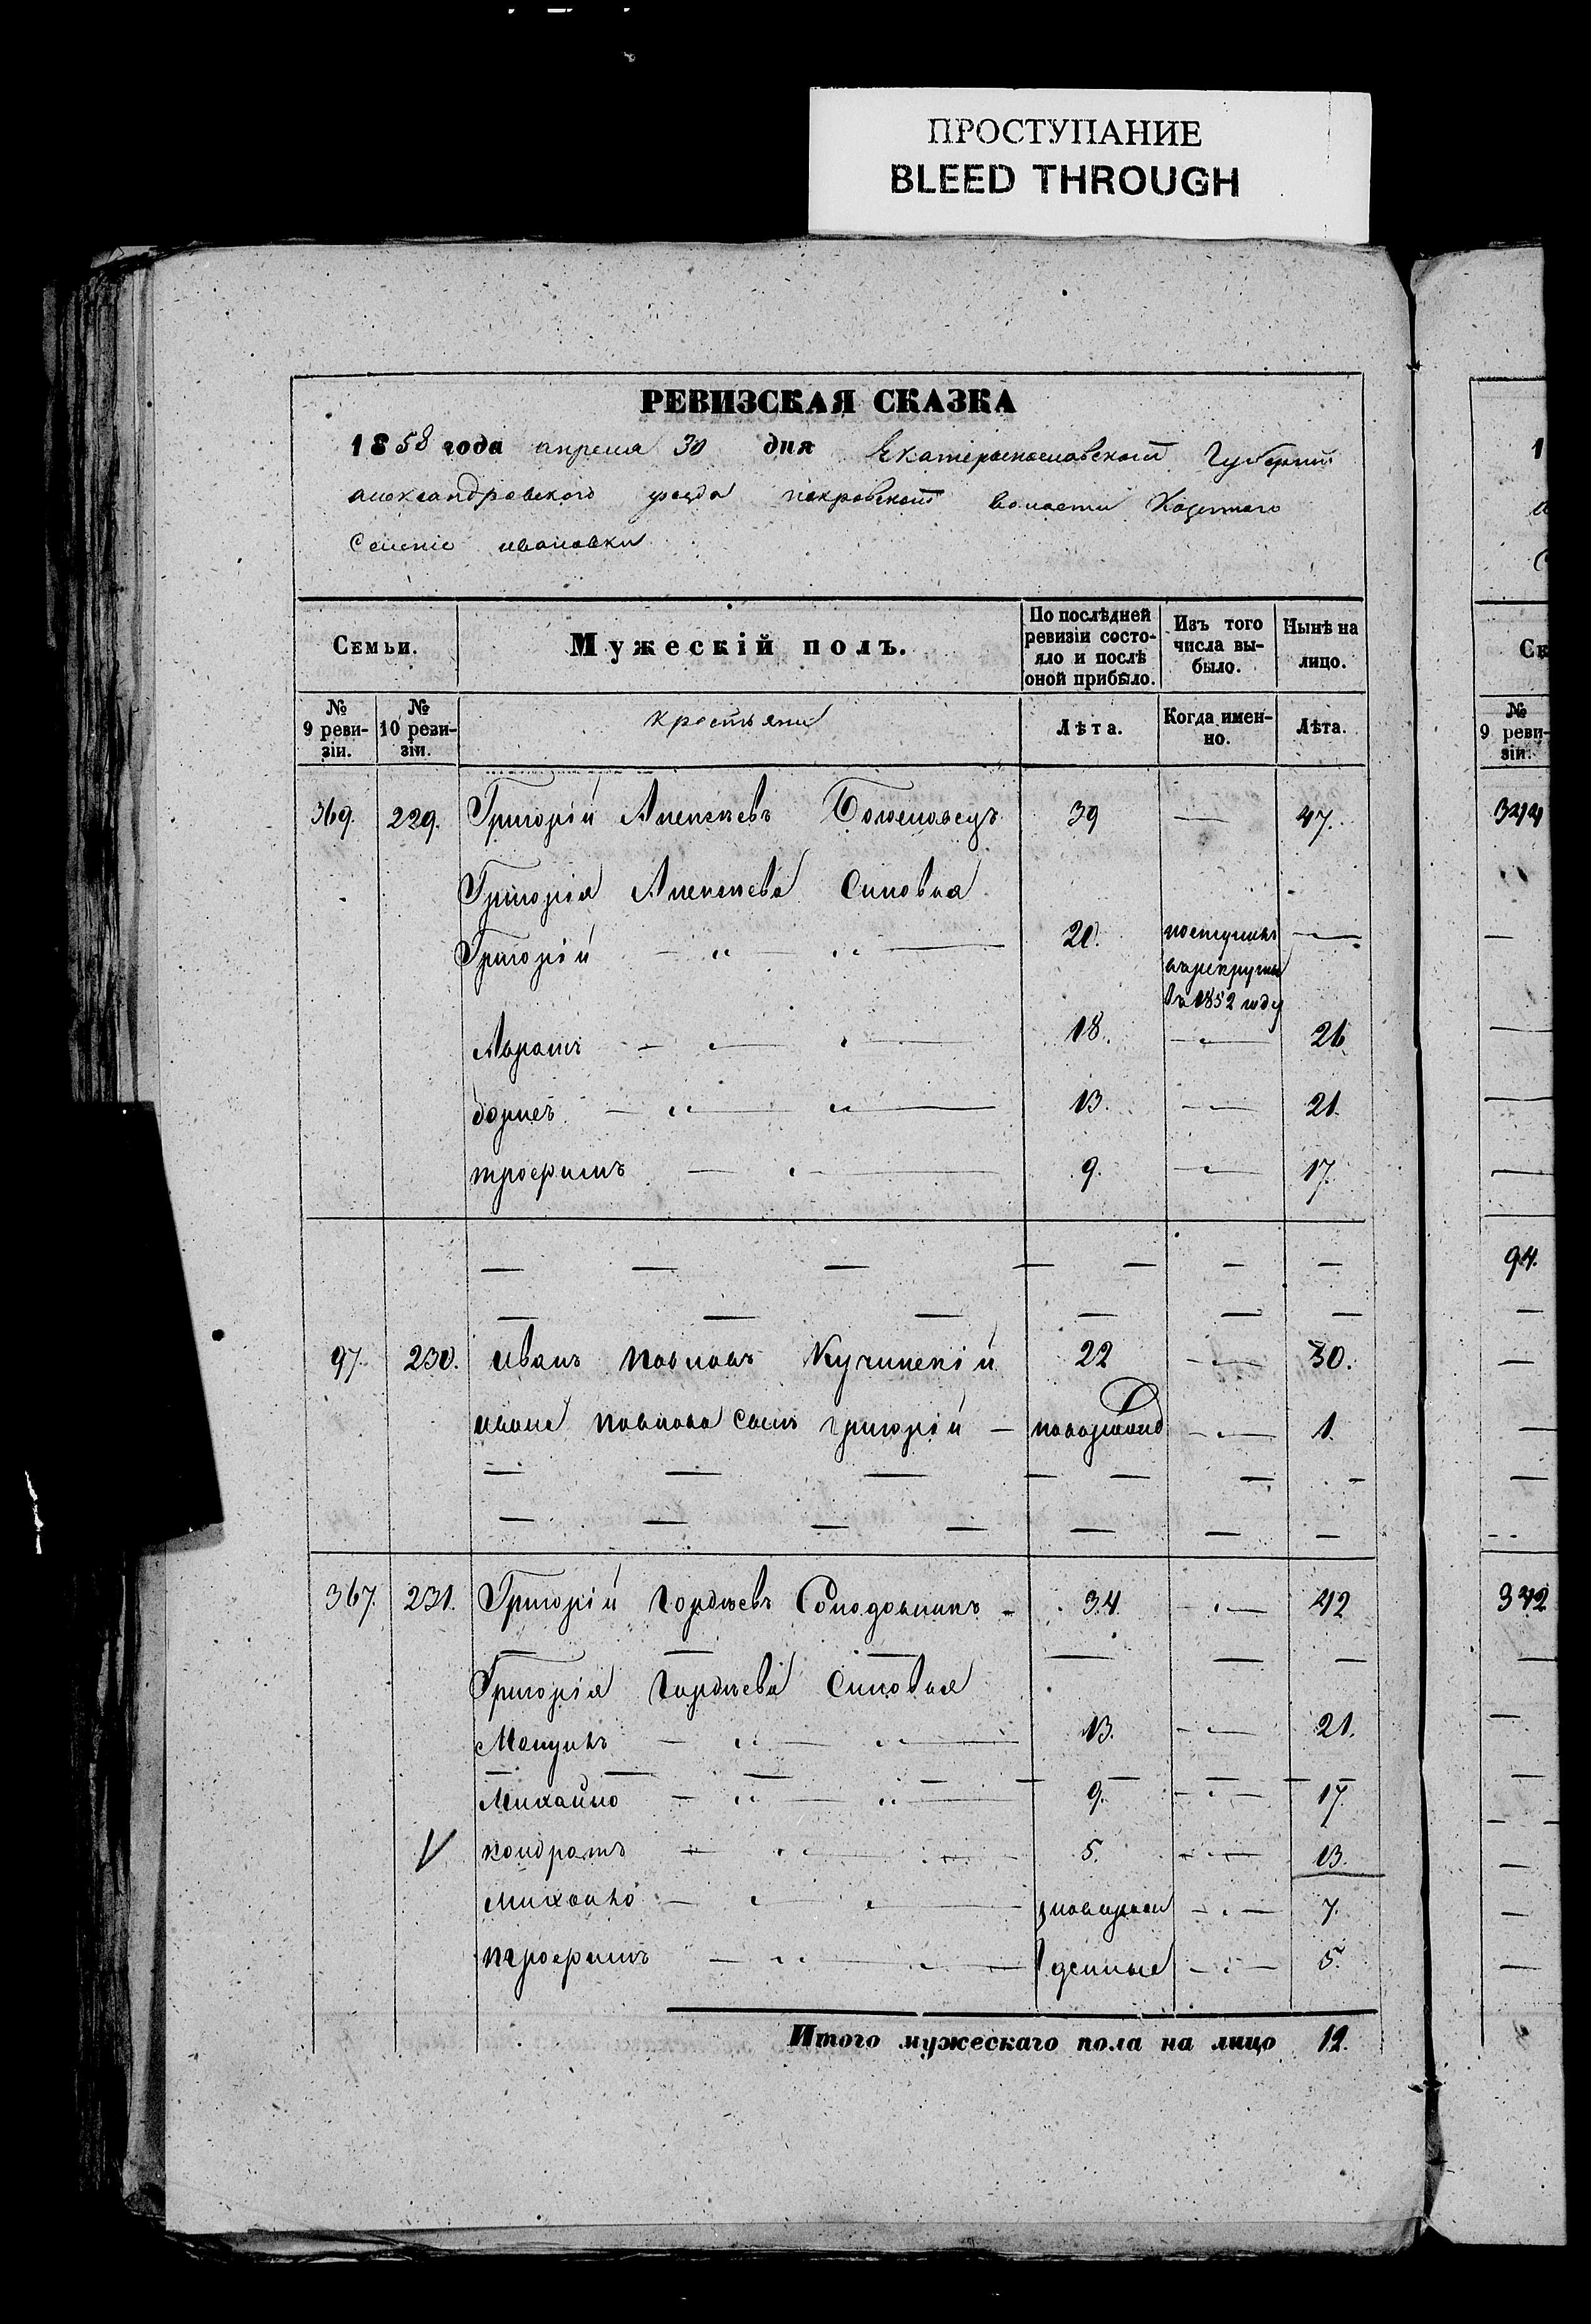 ПРОСТУПАНИЕ
BLEED THROUGH
РЕВИЗСКАЯ СКАЗКА
1858 года апреля 30 дня Екатеринославской Губернии
Александровского уезда покровской волости Казеннаго
Селенiе ивановки
Семьи.
Мужескiй полъ.
По послѣдней ревизiи состо-яло и послѣ оной прибыло.
Изъ того числа вы-было.
Нынѣ на лицо.
№ 9 реви-зiи.
№ 10 реви-зiи.
крестьяни
Лѣта.
Когда имен-но.
Лѣта.
369. 229. Григорiй Алексѣевъ 39 — 47.
Григорiя Алексѣева Сыновья
Григорiй — " — " — 20. поступилъ —
въ рекруты
въ 1852 году
18. — " — 26
борисъ — " — " — 13. — " — 21.
трофимъ — " — 9. — " — 17.
— — — — — — —
— — — — — —
97. 230. иванъ павловъ Кучинскiй 22 — " — 30.
ивана павлова сынъ григорiй — новорожд — " — 1.
— — — — — — —
— — — — — — —
367. 231. Григорiй гордѣевъ Солодовникъ - 34. — " — 42
— — — — — —
Григорiя гордѣева Сыновья
— " — " — 13. — " — 21.
— — — — — — — —
Михайло — " — " — 9. — " — 17.
V кондратъ — " — " — 5. — " — 13.
михайло — " — " — новорож — " — 7.
трофимъ — " — " — денные — " — 5.
Итого мужескаго пола на лицо 12.
1
Се
№
9 реви-
зiи.
344
94.
342